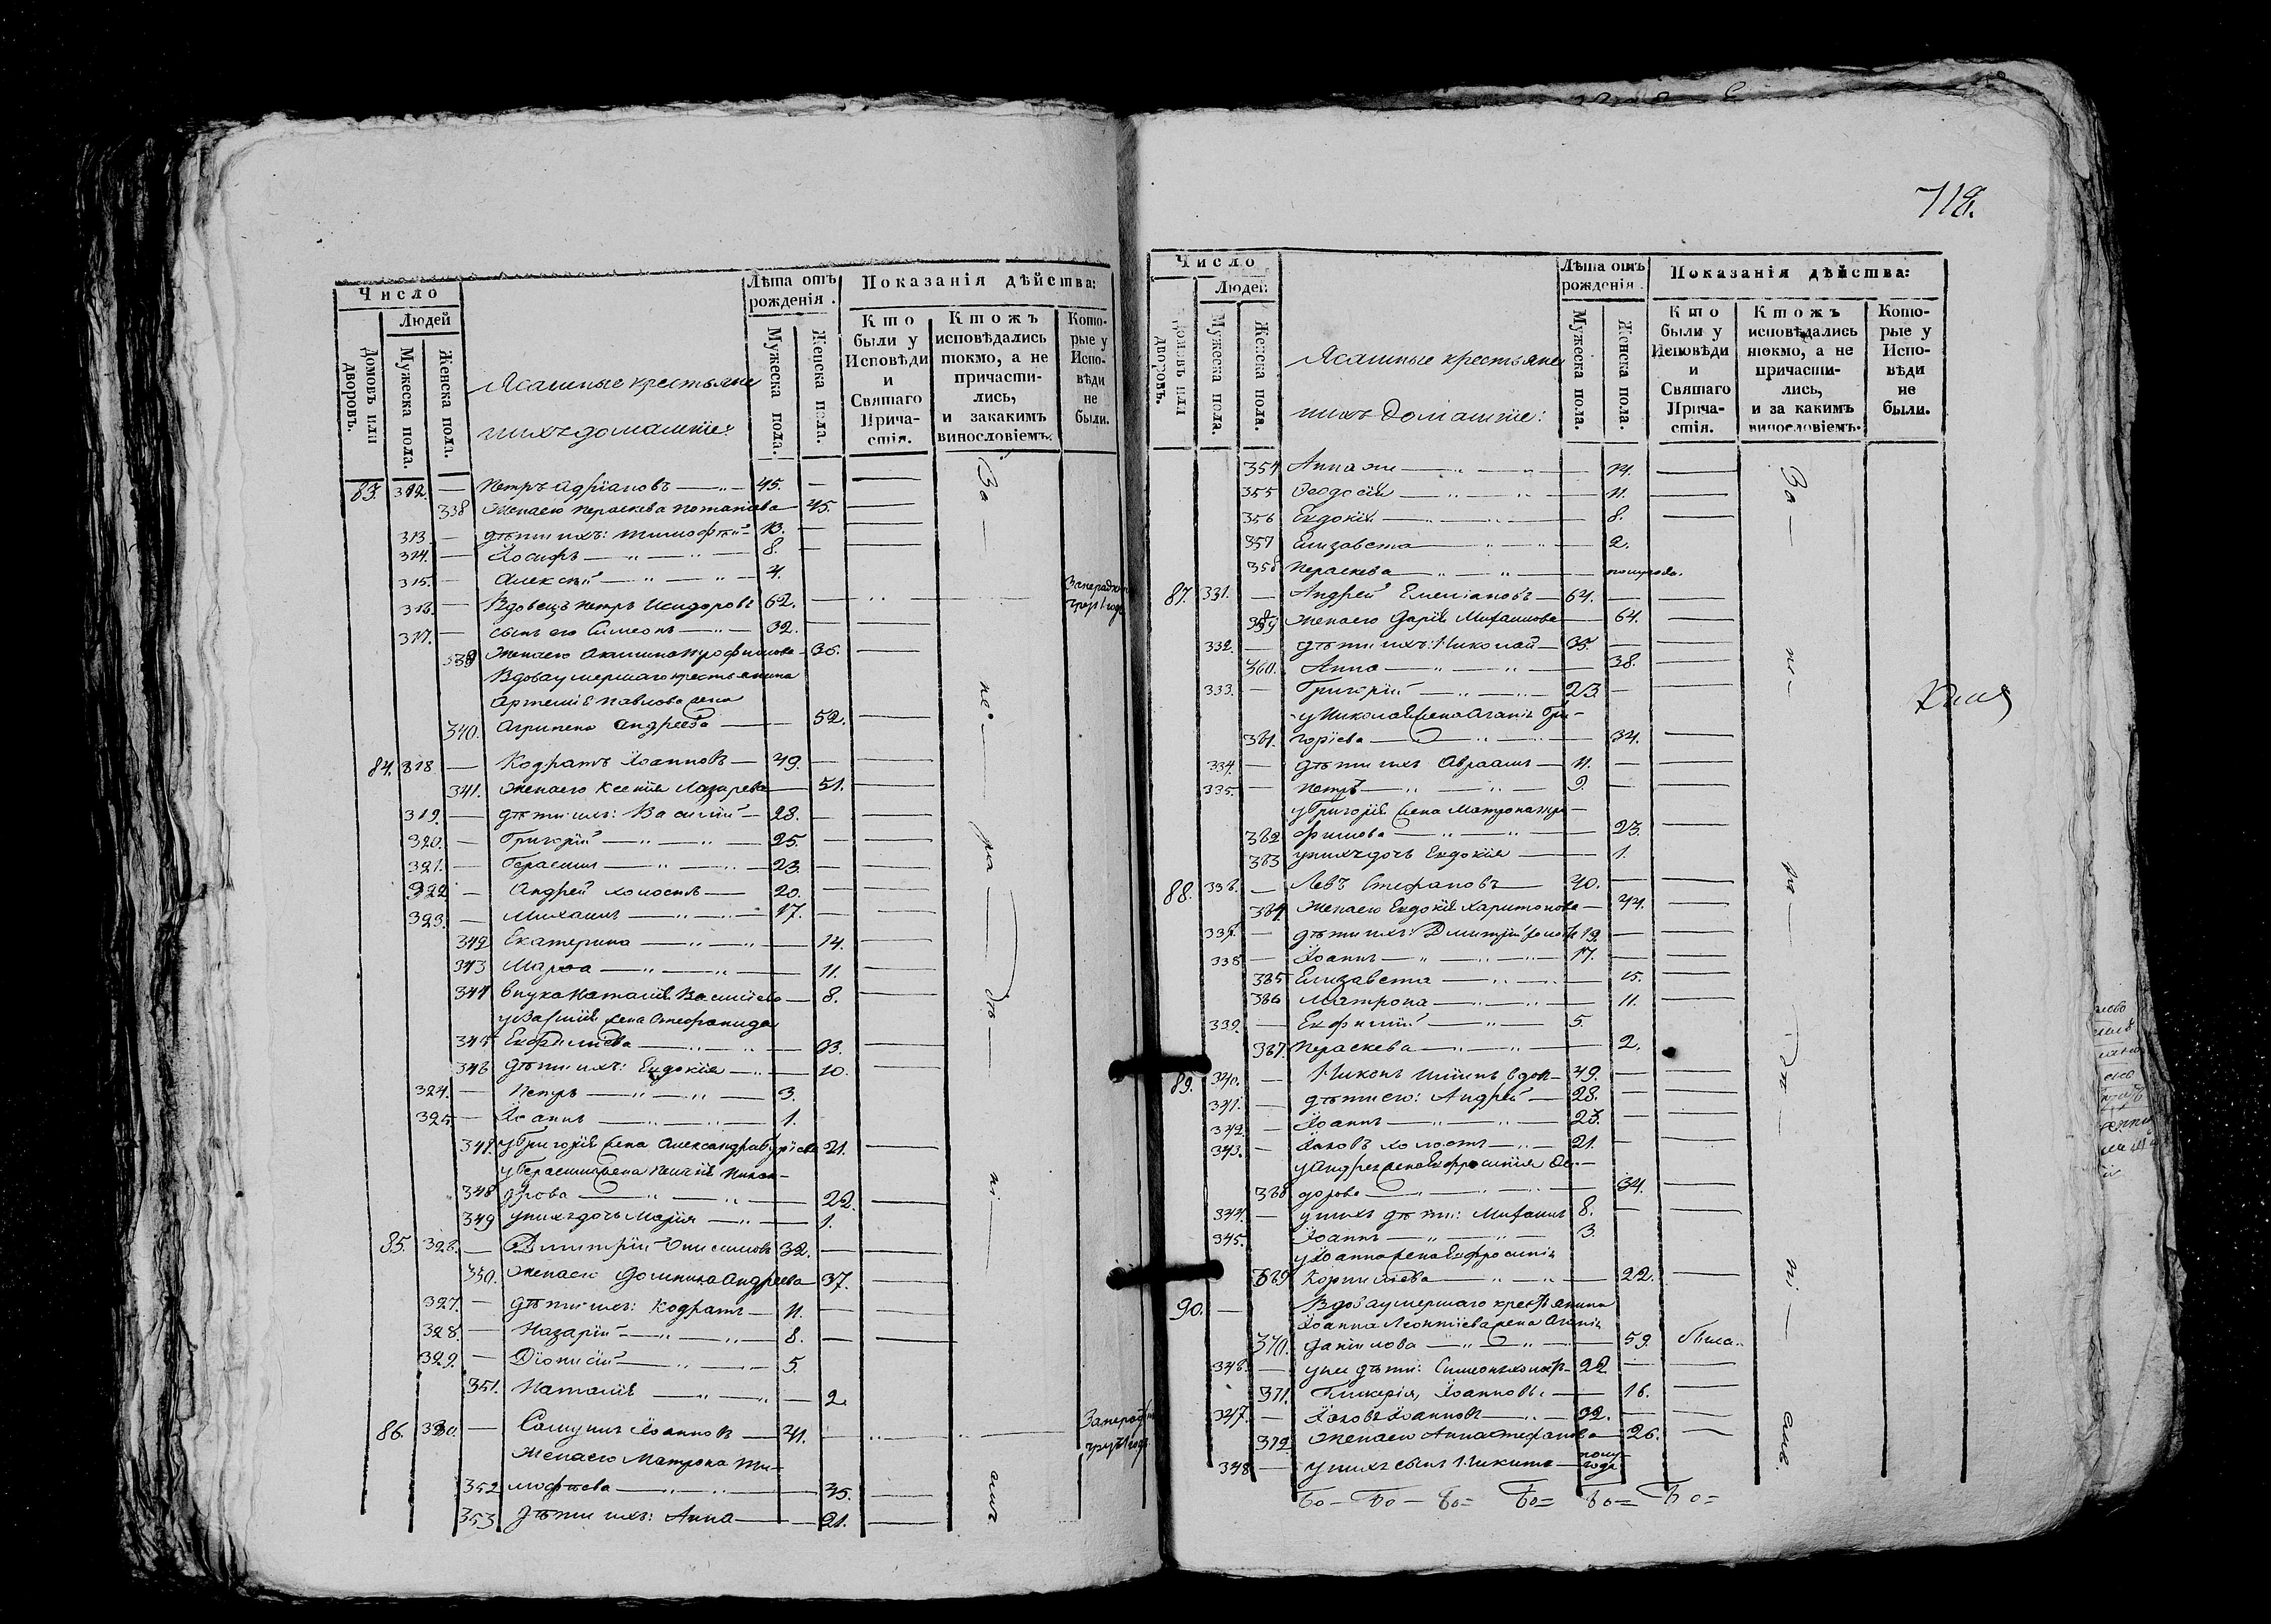 Число
Людей
Домовъ или дворовъ.
Мужеска пола.
Женска пола.
Ясашные крестьяне
и ихъ домашніе:
Лѣта отъ рожденія.
Мужеска пола.
Женска пола.
Показанія дѣйства:
Кто были у Исповѣди и Святаго Прича- стія.
Ктожъ исповѣдались токмо, а не причасти- лись, и закакимъ винословіемъ.
Кото- рые у Испо- вѣди не были.
83. 312. — Петръ Адріановъ — 45. —
338 Жена его Параскева Потапіева — 45.
313 — дѣти ихъ: Тимофей — 13. —
314. — Іосифъ — 8. —
315. — Алексѣй — 4.
316 — Вдовецъ Петръ Исидоровъ 62. —
317. — сынъ его Симеонъ — 32. —
339 Жена его Акилина Трофимова — 36.
Вдова умершаго крестьянина
Артемія Павлова жена
340. Агрипена Андреева — 52.
84. 318 — Кодратъ Іоанновъ — 49. —
341. Жена его Ксенія Лазарева — 51.
319. — дѣти ихъ: Василій — 28. —
320. — Григорій — 25. —
321. — Герасимъ — 23. —
322 — Андрей холостъ — 20. —
323. — Михаилъ — 17. —
342 Екатерина — 14.
343 Марѳа — 11.
344 внука Наталія Василіева — 8.
у Василія жена Стефанида
345 — 33.
346 дѣти ихъ: Евдокія — 10.
324. — Петръ — 3.
325 — Іоаннъ — 1.
347. у Григорія жена Александра — 21.
у Герасима жена
348 — 22.
349 у нихъ дочь Марія — 1.
85. 326. — Димитрій Онисимовъ 32. —
350. Жена его Домника Андреева — 37.
327. — дѣти ихъ: Кодратъ — 11. —
328. — Назарій — 8. —
329. — Діонисій — 5.
351. Наталія — 2.
86. 330. — Самуилъ Іоанновъ — 41. —
Жена его Матрона Ти-
352 мофеева — 45.
353. дѣти ихъ: Анна — 21.
718.
Число
Людей
Домовъ или дворовъ.
Мужеска пола.
Женска пола.
Ясашные крестьяне
и ихъ домашніе:
Лѣта отъ рожденія.
Мужеска пола.
Женска пола.
Показанія дѣйства:
Кто были у Исповѣди и Святаго Прича- стія.
Ктожъ исповѣдались токмо, а не причасти- лись, и за какимъ винословіемъ.
Кото- рые у Испо- вѣди не были.
354 Анна же — 14.
355 Ѳеодосія — 11.
356 Евдокія — 8.
357 Елизавета — 2.
358 Параскева — полугода.
87. 331. — Андрей Емеліановъ — 64. —
359 Жена его Дарія Михаилова — 64.
332. — дѣти ихъ: Николай — 35. —
360. Анна — 38.
333. — Григорій — 23 —
у Николая жена Агапія Гри-
361. горіева — 34.
334. — дѣти ихъ Авраамъ — 11. —
335. — Петръ — 9. —
у Григорія жена Матрона Тро-
362 фимова — 23.
363 у нихъ дочь Евдокія — 1.
88. 336. — Левъ Стефановъ — 40. —
364 Жена его Евдокія Харитонова — 44.
337. — дѣти ихъ: Димитрій холостъ 19. —
338 — Іоаннъ — 17. —
365 Елизавета — 15.
366 Матрона — 11.
339. — Евфимій — 5.
367. Параскева — 2.
89. 340. — Никонъ — 49. —
341. — дѣти его: Андрей — 28. —
342. — Іоаннъ — 23. —
343. — Іаковъ холостъ — 21. —
у Андрея жена Евфросинія Ѳео-
368 дорова — 34.
344. — у нихъ дѣти: Михаилъ 8. —
345. — Іоаннъ — 3.
у Іоанна жена Евфросинія
369 Корниліева — 22.
90. — Вдова умершаго крестьянина
Іоанна Леонтіева жена Агапія
370. Даніилова — 59. была.
346. — у ней дѣти: Симеонъ холостъ — 22 —
371. Гликерія Іоаннова — 16.
347. — Іаковъ Іоанновъ — 32. —
372. Жена его Анна Стефанова — 26.
348 — у нихъ сынъ Никита — полу- года